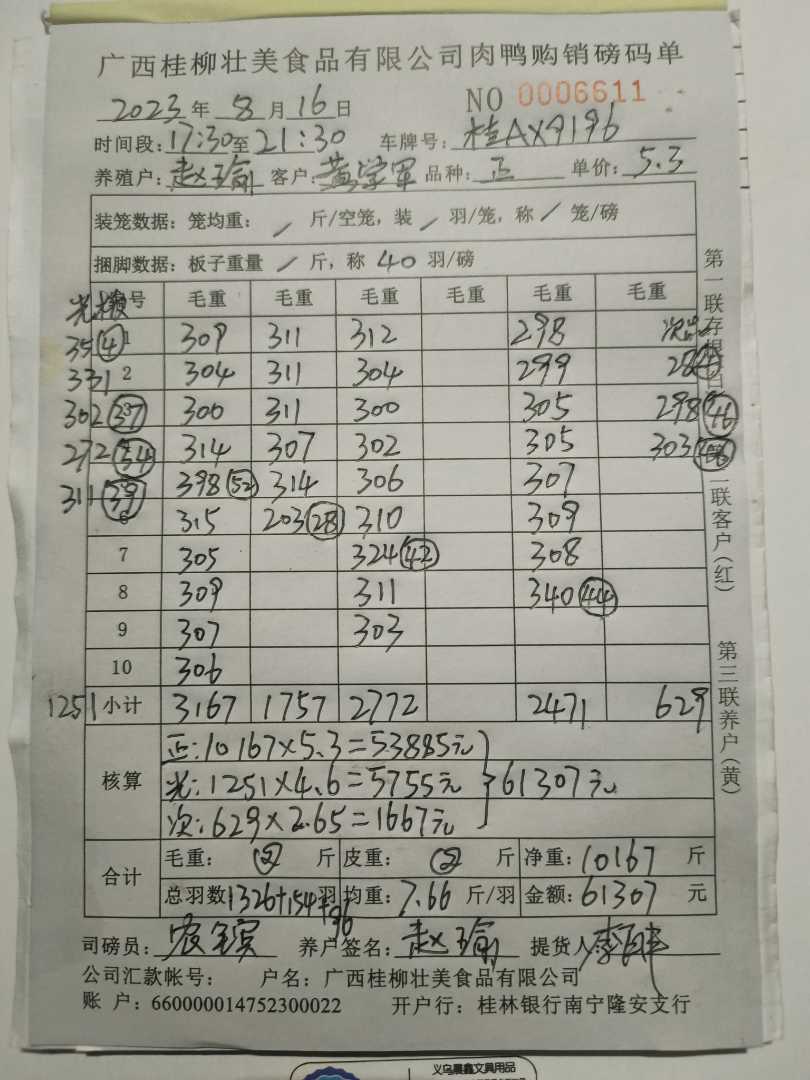 广西桂柳壮美食品有限公司肉鸭购销磅码单
2023年8月16日 NO 0006611
时间段:17:30至21:30 车牌号:桂AX9196
养殖户:赵瑜 客户:黄学军 品种:正 单价:5.3
装笼数据:笼均重:/斤/空笼,装/羽/笼,称/笼/磅
捆脚数据:板子重量/斤,称40羽/磅
号 毛重 毛重 毛重 毛重 毛重 毛重
35④ 1 309 311 312 298 次
331 2 304 311 304 299 28
302(37) 300 311 300 305 298(46)
272(34) 314 307 302 305 303
311(39) 398(52) 314 306 307
6 315 203(28) 310 309
7 305 324(42) 308
8 309 311 340(44)
9 307 303
10 306
1251 小计 3167 1757 2772 2471 629
核算
正:10167×5.3=53885元
光:1251×4.6=5755元 }61307元
次:629×2.65=1667元
合计
毛重: 斤 皮重: 斤 净重:10167 斤
总羽数1326+154+96羽 均重:7.66 斤/羽 金额:61307 元
司磅员: 养户签名:赵瑜 提货人:李
公司汇款帐号: 户名:广西桂柳壮美食品有限公司
账 户:660000014752300022 开户行:桂林银行南宁隆安支行
第一联存根白
二联客户(红)
第三联养户(黄)
义乌晨鑫文具用品